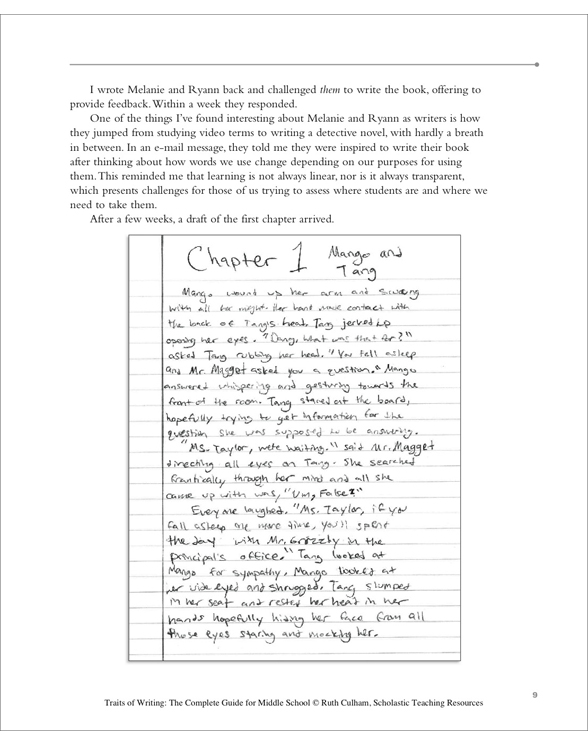 I wrote Melanie and Ryann back and challenged them to write the book, offering to
provide feedback. Within a week they responded.
One of the things I've found interesting about Melanie and Ryann as writers is how
they jumped from studying video terms to writing a detective novel, with hardly a breath
in between. In an e-mail message, they told me they were inspired to write their book
after thinking about how words we use change depending on our purposes for using
them. This reminded me that learning is not always linear, nor is it always transparent,
which presents challenges for those of us trying to assess where students are and where we
need to take them.
After a few weeks, a draft of the first chapter arrived.
Chapter 1 Mango and
Tang
Mango wound up her arm and swung
with all her might. Her hand made contact with
the back of Tangs head. Tang jerved up
opening her eyes. "Dang, what was that for?"
asked Tang rubbing her head. "You fell asleep
and Mr. Magget asked you a question." Mango
answered whispering and gesturing towards the
front of the room. Tang stared at the board,
hopefully trying to get information for the
question she was supposed to be answering.
"Ms. Taylor, we're waiting." said Mr. Magget
directing all eyes on Tang. She searched
frantically through her mind and all she
came up with was, "Um, False?"
Everyone laughed. "Ms. Taylor, if you
fall asleep one more time, you'll spend
the day with Mr. Grizzly in the
principal's office." Tang looked at
Mango for sympathy, Mango looked at
her wide eyed and shrugged. Tang slumped
in her seat and rested her head in her
hands hopefully hiding her face from all
those eyes staring and mocking her.
9
Traits of Writing: The Complete Guide for Middle School © Ruth Culham, Scholastic Teaching Resources